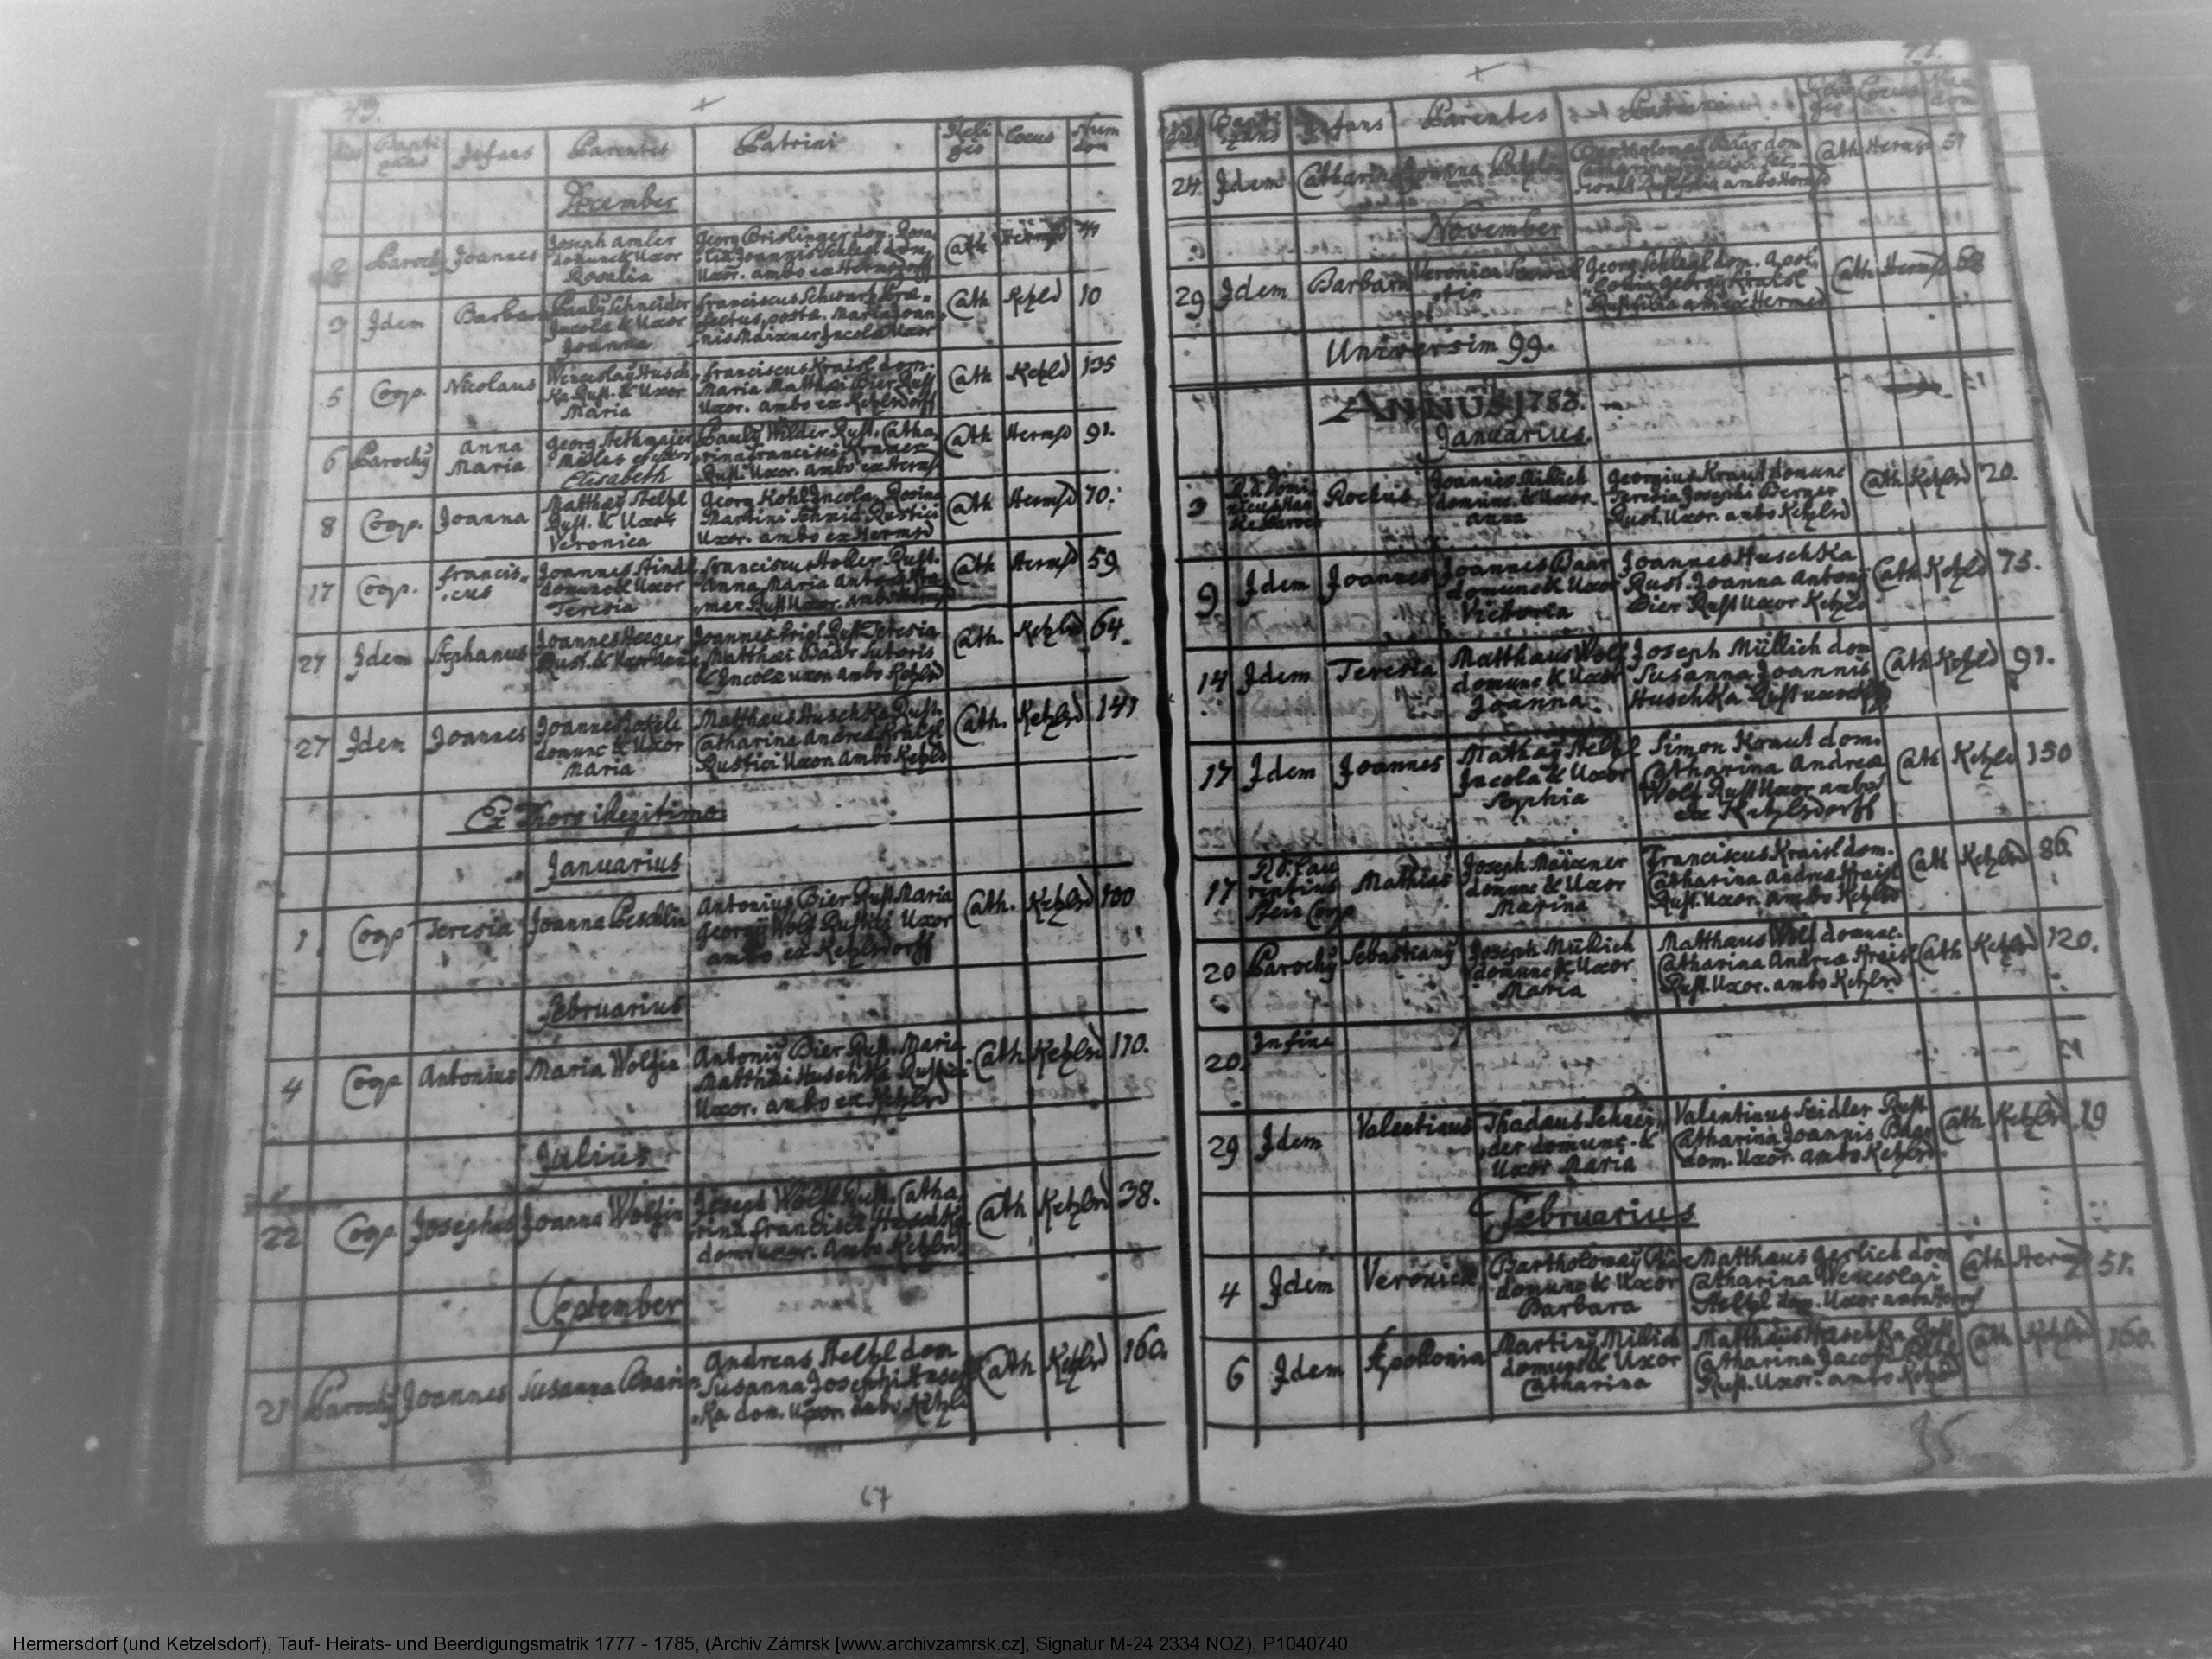 49.
Dies Bapti
zans Infans Parentes Patrini Reli
gio Locus Num
dom
December
2 Parochy Joannes Joseph Amler
domunc & Uxor
Rosalia Georg Brislinger dom. Rosa
lia Joannis Schlegl dom.
Uxor. ambo ex Hermsdorff Cath Hermsd 44
3 Idem Barbara Pauly Schneider
Incola & Uxor
Joanna Franciscus Schwartz Præ„
fectus postæ. Maria Joan„
nis Maixner Incolæ Uxor Cath Kezlsd 10
5 Coop. Nicolaus Wenceslaÿ Husch„
Ka Rust. & Uxor
Maria Franciscus Kraisl dom.
Maria Matthæi Bier Rust
Uxor. ambo ex Kezlsdorff Cath Kezlsd 135
6 Parochÿ Anna
Maria Georg
Miles et Uxor
Elisabeth Pauly Wilder Rust. Catha„
rina Francisci Kramer
Rusti Uxor. ambo ex Hermsd Cath Hermsd 91.
8 Coop. Joanna Matthaÿ Steltzl
Rust. & Uxor
Veronica Georg Kohl Incola. Rosina
Martini Schmid Rustici
Uxor. ambo ex Hermsd Cath Hermsd 70.
17 Coop. Francis„
cus Joannes
domunc & Uxor
Teresia Franciscus Rust.
Anna Maria Antoni Kra
„mer Rust Uxor. ambo Hermsd Cath Hermsd 59
27 Idem Stephanus Joannes Heeger
Rust. & Uxor Joannes Rust Teresia
Matthæi Baar Sutoris
& Incolæ uxor ambo Kezlsd Cath. Kezlsd 64
27 Idem Joannes Joannes
domunc & Uxor
Maria Matthæus Huschka Rust.
Catharina Andreæ Kraisl
Rustici Uxor Ambo Kezlsd Cath. Kezlsd 141
Ex Thoro illegitimo.
Januarius
1. Coop Teresia Joanna Peschlin Antonius Bier Rust Maria
Georgÿ Wolf Rustici Uxor
ambo ex Kezlsdorff Cath. Kezlsd 100
Februarius
4 Coop Antonius Maria Wolfin Antoniÿ Bier Rust. Maria
Matthæi Huschka Rustici
Uxor. ambo ex Kezlsd Cath Kezlsd 110.
Julius
22 Coop Josephus Joanna Wolfin Joseph Wölfl Rust. Catha„
rina Francisci Huschka
dom: uxor. Ambo Kezlsd Cath Kezlsd 38.
September
21 Parochÿ Joannes Susanna Baarin Andreas Steltzl dom
Susanna Josephi Husch
„Ka dom. Uxor. ambo Kezlsd Cath Kezlsd 160.
67
Dies Bapti
zans Infans Parentes Patrini Reli
gio Locus Nu
dom
24 Idem Catharina Joanna Bartholomæÿ Baar dom
Catharina Francisci
ambo Hermsd Cath Hermsd 51
November
29 Idem Barbara Veronica Georg Schlegl dom. Apol„
lonia Georgÿ Kraisl
Rusti filia am. ex Hermsd Cath Hermsd 68
Universim 99.
ANNUS 1783.
Januarius.
3 R. D. Domi
nicus
Paroch Rochus Joannes Millich
domunc. & Uxor.
Anna Georgius Kraut domunc
Teresia Josephi Berner
Rust. Uxor. ambo Kezlsd Cath Kezlsd 20.
9. Idem Joannes Joannes Baar
domunc & Uxor
Victoria Joannes Huschka
Rust. Joanna Antoniÿ
Bier Rust Uxor Kezlsd Cath Kezlsd 75.
14 Idem Teresia Matthæus Wolf
domunc & Uxor
Joanna. Joseph Müllich dom
Susanna Joannis
Huschka Rust uxor Cath Kezlsd 91.
17 Idem Joannes Mathaÿ Steltzl
Incola & Uxor
Sophia Simon Kraut dom.
Catharina Andreæ
Wolf Rust Uxor ambo
ex Kezlsdorff Cath Kezlsd 150
17 R. D. Lau
rentius
Coop Mathias Joseph Maixner
domunc & Uxor
Marina Franciscus Kraisl dom.
Catharina Andreæ Kraisl
Rust. Uxor. ambo Kezlsd Cath Kezlsd 86.
20 Parochÿ Sebastianÿ Joseph Müllich
domunc & Uxor
Maria Matthæus Wolf domunc.
Catharina Andreæ Kraisl
Rust. Uxor. ambo Kezlsd Cath Kezlsd 120.
20. Infine
29 Idem Valentinus Thadæus Schnei„
der domunc. &
Uxor Maria Valentinus Seidler Rust
Catharina Joannis Baar
dom. Uxor. ambo Kezlsd Cath Kezlsd 19
Februarius
4 Idem Veronica Bartholomaÿ
domunc & Uxor
Barbara Matthæus Gerlich dom
Catharina Wenceslai
Steltzl dom. Uxor ambo Herms Cath Herms 51.
6 Idem Apollonia Martinÿ Millich
domunc & Uxor
Catharina Matthæus Huschka Rust
Catharina Jacobi
Rust. Uxor. ambo Kezlsd Cath Kezlsd 160.
35
Hermersdorf (und Ketzelsdorf), Tauf- Heirats- und Beerdigungsmatrik 1777 - 1785, (Archiv Zámrsk [www.archivzamrsk.cz], Signatur M-24 2334 NOZ), P1040740